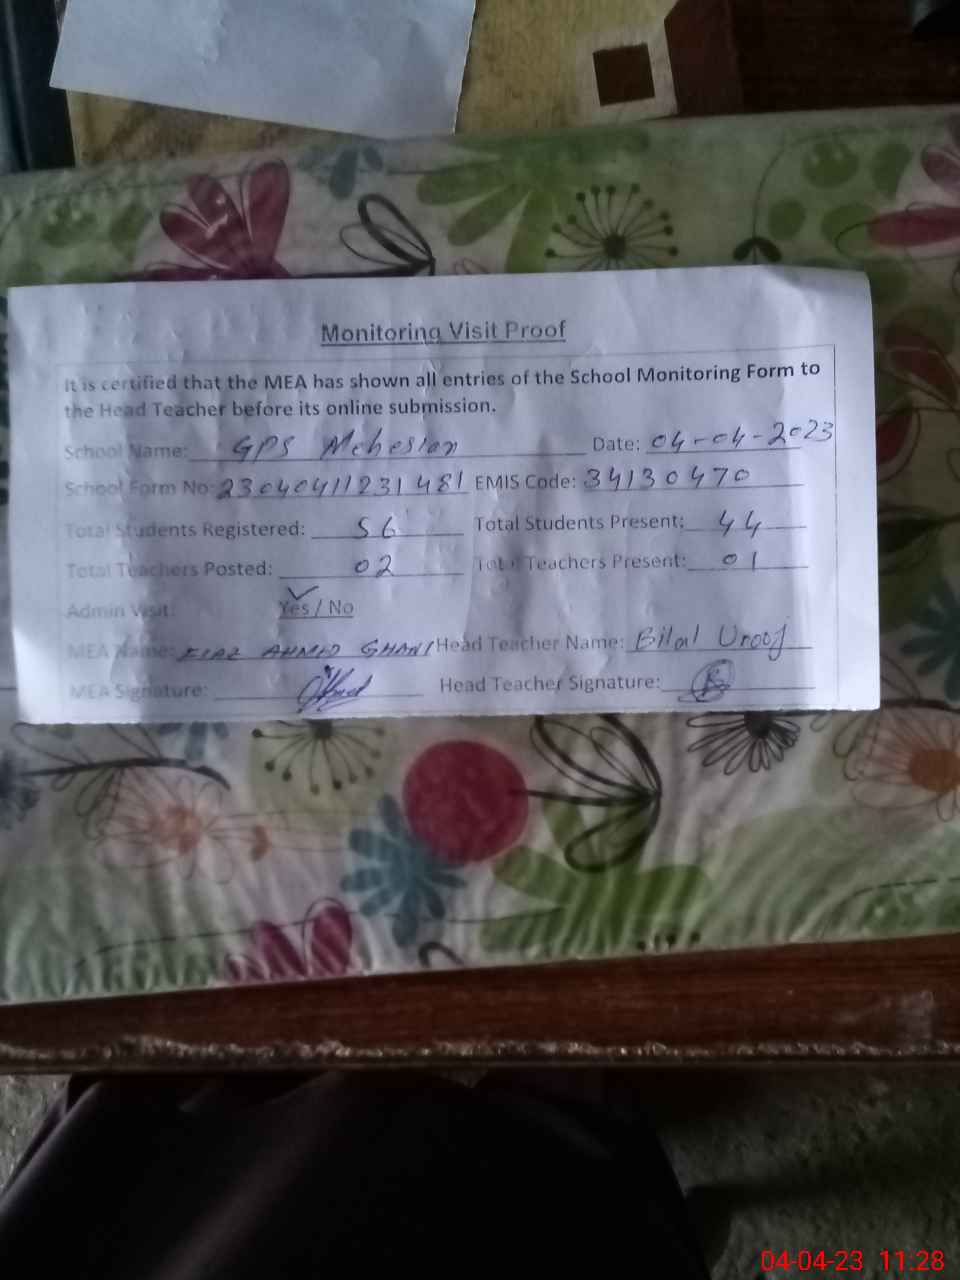 Monitoring Visit Proof
It is certified that the MEA has shown all entries of the School Monitoring Form to
the Head Teacher before its online submission.
School Name: GPS Mehesian Date: 04-04-2023
School Form No: 23040411231481 EMIS Code: 34130470
Total Students Registered: 56 Total Students Present: 44
Total Teachers Posted: 02 Total Teachers Present: 01
Admin Visit: Yes / No
MEA Name: AHMED GHANI Head Teacher Name: Bilal Urooj
MEA Signature: Head Teacher Signature:
04-04-23 11:28